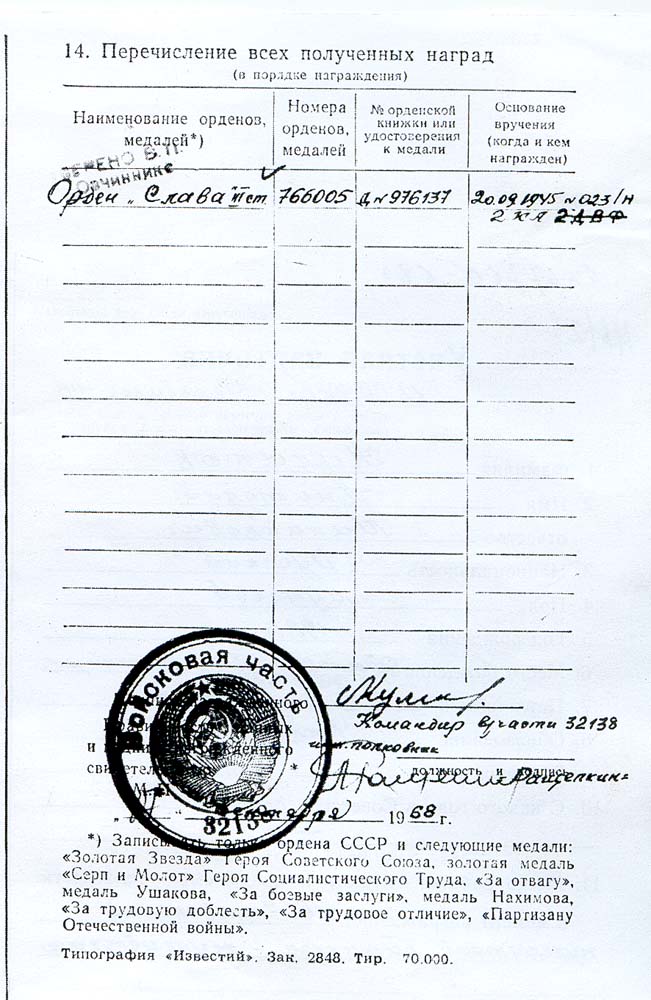 14. Перечисление всех полученных наград
(в порядке награждения)
Наименование орденов, медалей*)
Номера орденов, медалей
№ орденской книжки или удостоверения к медали
Основание вручения (когда и кем награжден)
Орден „Слава III ст 766005 Д № 976137 20.09.1945 № 023/н
2 КА 2ДВФ
Войсковая часть
32138
Командир в/части 32138
должность и подпись
М.
1968 г.
*) Записывать только ордена СССР и следующие медали:
«Золотая Звезда» Героя Советского Союза, золотая медаль
«Серп и Молот» Героя Социалистического Труда, «За отвагу»,
медаль Ушакова, «За боевые заслуги», медаль Нахимова,
«За трудовую доблесть», «За трудовое отличие», «Партизану
Отечественной войны».
Типография «Известий». Зак. 2848. Тир. 70.000.